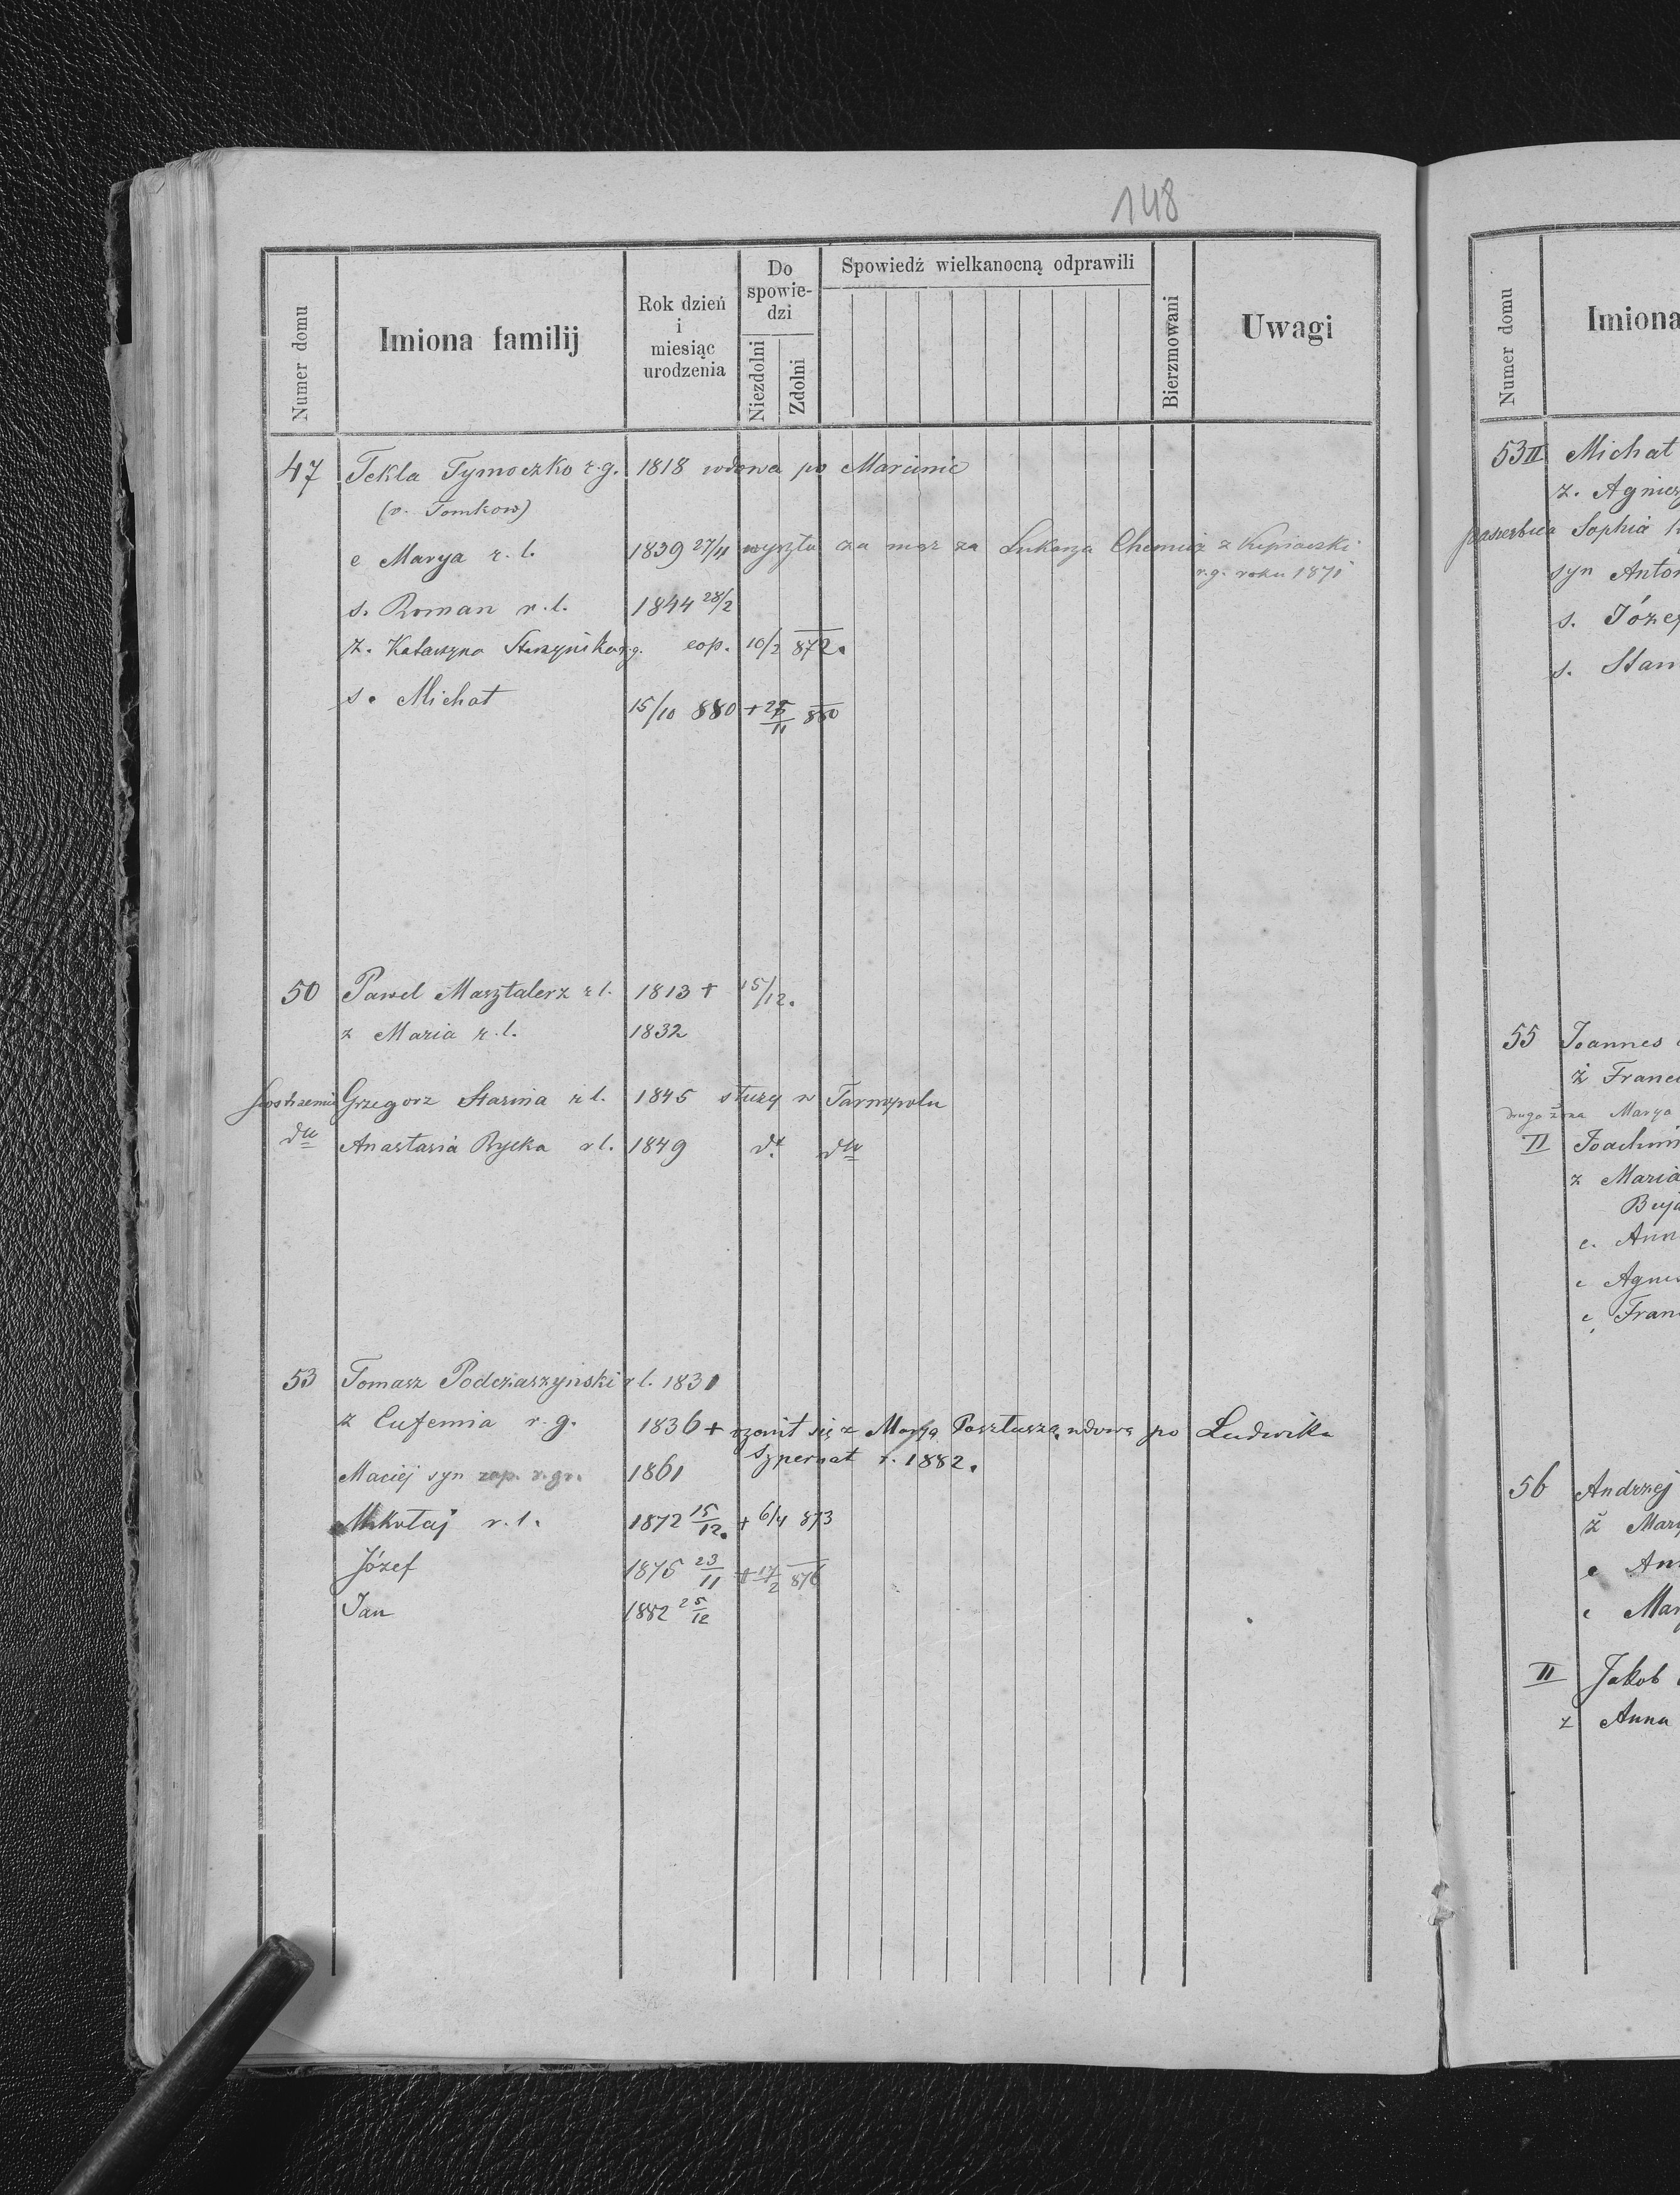 148
Numer domu
Imiona familij
Rok dzień
i
miesiąc
urodzenia
Do
spowie-
dzi
Niezdolni
Zdolni
Spowiedź wielkanocną odprawili
Bierzmowani
Uwagi
47 Tekla Tymoczko r.g. 1818 wdowa po Marcinie
(v. Tomkow)
c Marya r.l. 1839 27/4 wyszła za mąż za Łukasza z
r.g. roku 1871
s. Roman r.l. 1844 28/2
ż. Katarzyna r.g. cop. 10/2 872.
s. Michał 15/10 880 + 25/11 880
50 Paweł Masztalerz r.l. 1813 + 15/12.
z Maria r.l. 1832
Grzegorz Starina r.l. 1845 służy w Tarnopolu
dtt Anastasia Rycka r.l. 1849 dt dtt
53 Tomasz Podczaszyński r.l. 1831
z Eufemia r.g. 1836 + ożenił się z Marya wdową po Ludwiku
Szpernat r. 1882.
Maciej syn zap. r.gr. 1861
Mikołaj r.l. 1872 15/12. + 6/4 873
Józef 1875 23/11 + 17/2 876
Jan 1882 25/12
Numer domu
Imiona
53 II Michał
z. Agniesz
pasierbica Sophia
syn Anton
s. Józef
s. Stan
55 Joannes
ż Franc
druga żona Marya
II Joachim
z Maria
Buja
c. Ann
c Agnes
c, Fran
56 Andrzej
ż Mary
c An
c Mar
II Jakob
z Anna